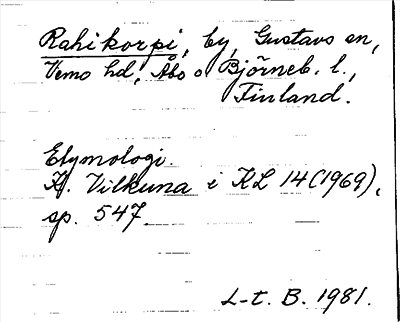 Rahikorpi, by, Gustavs sn,
Vemo hd, Åbo o Björneb. l.,
Finland.
Etymologi.
K. Vilkuna i KL 14 (1969),
sp. 547.
L-t. B. 1981.